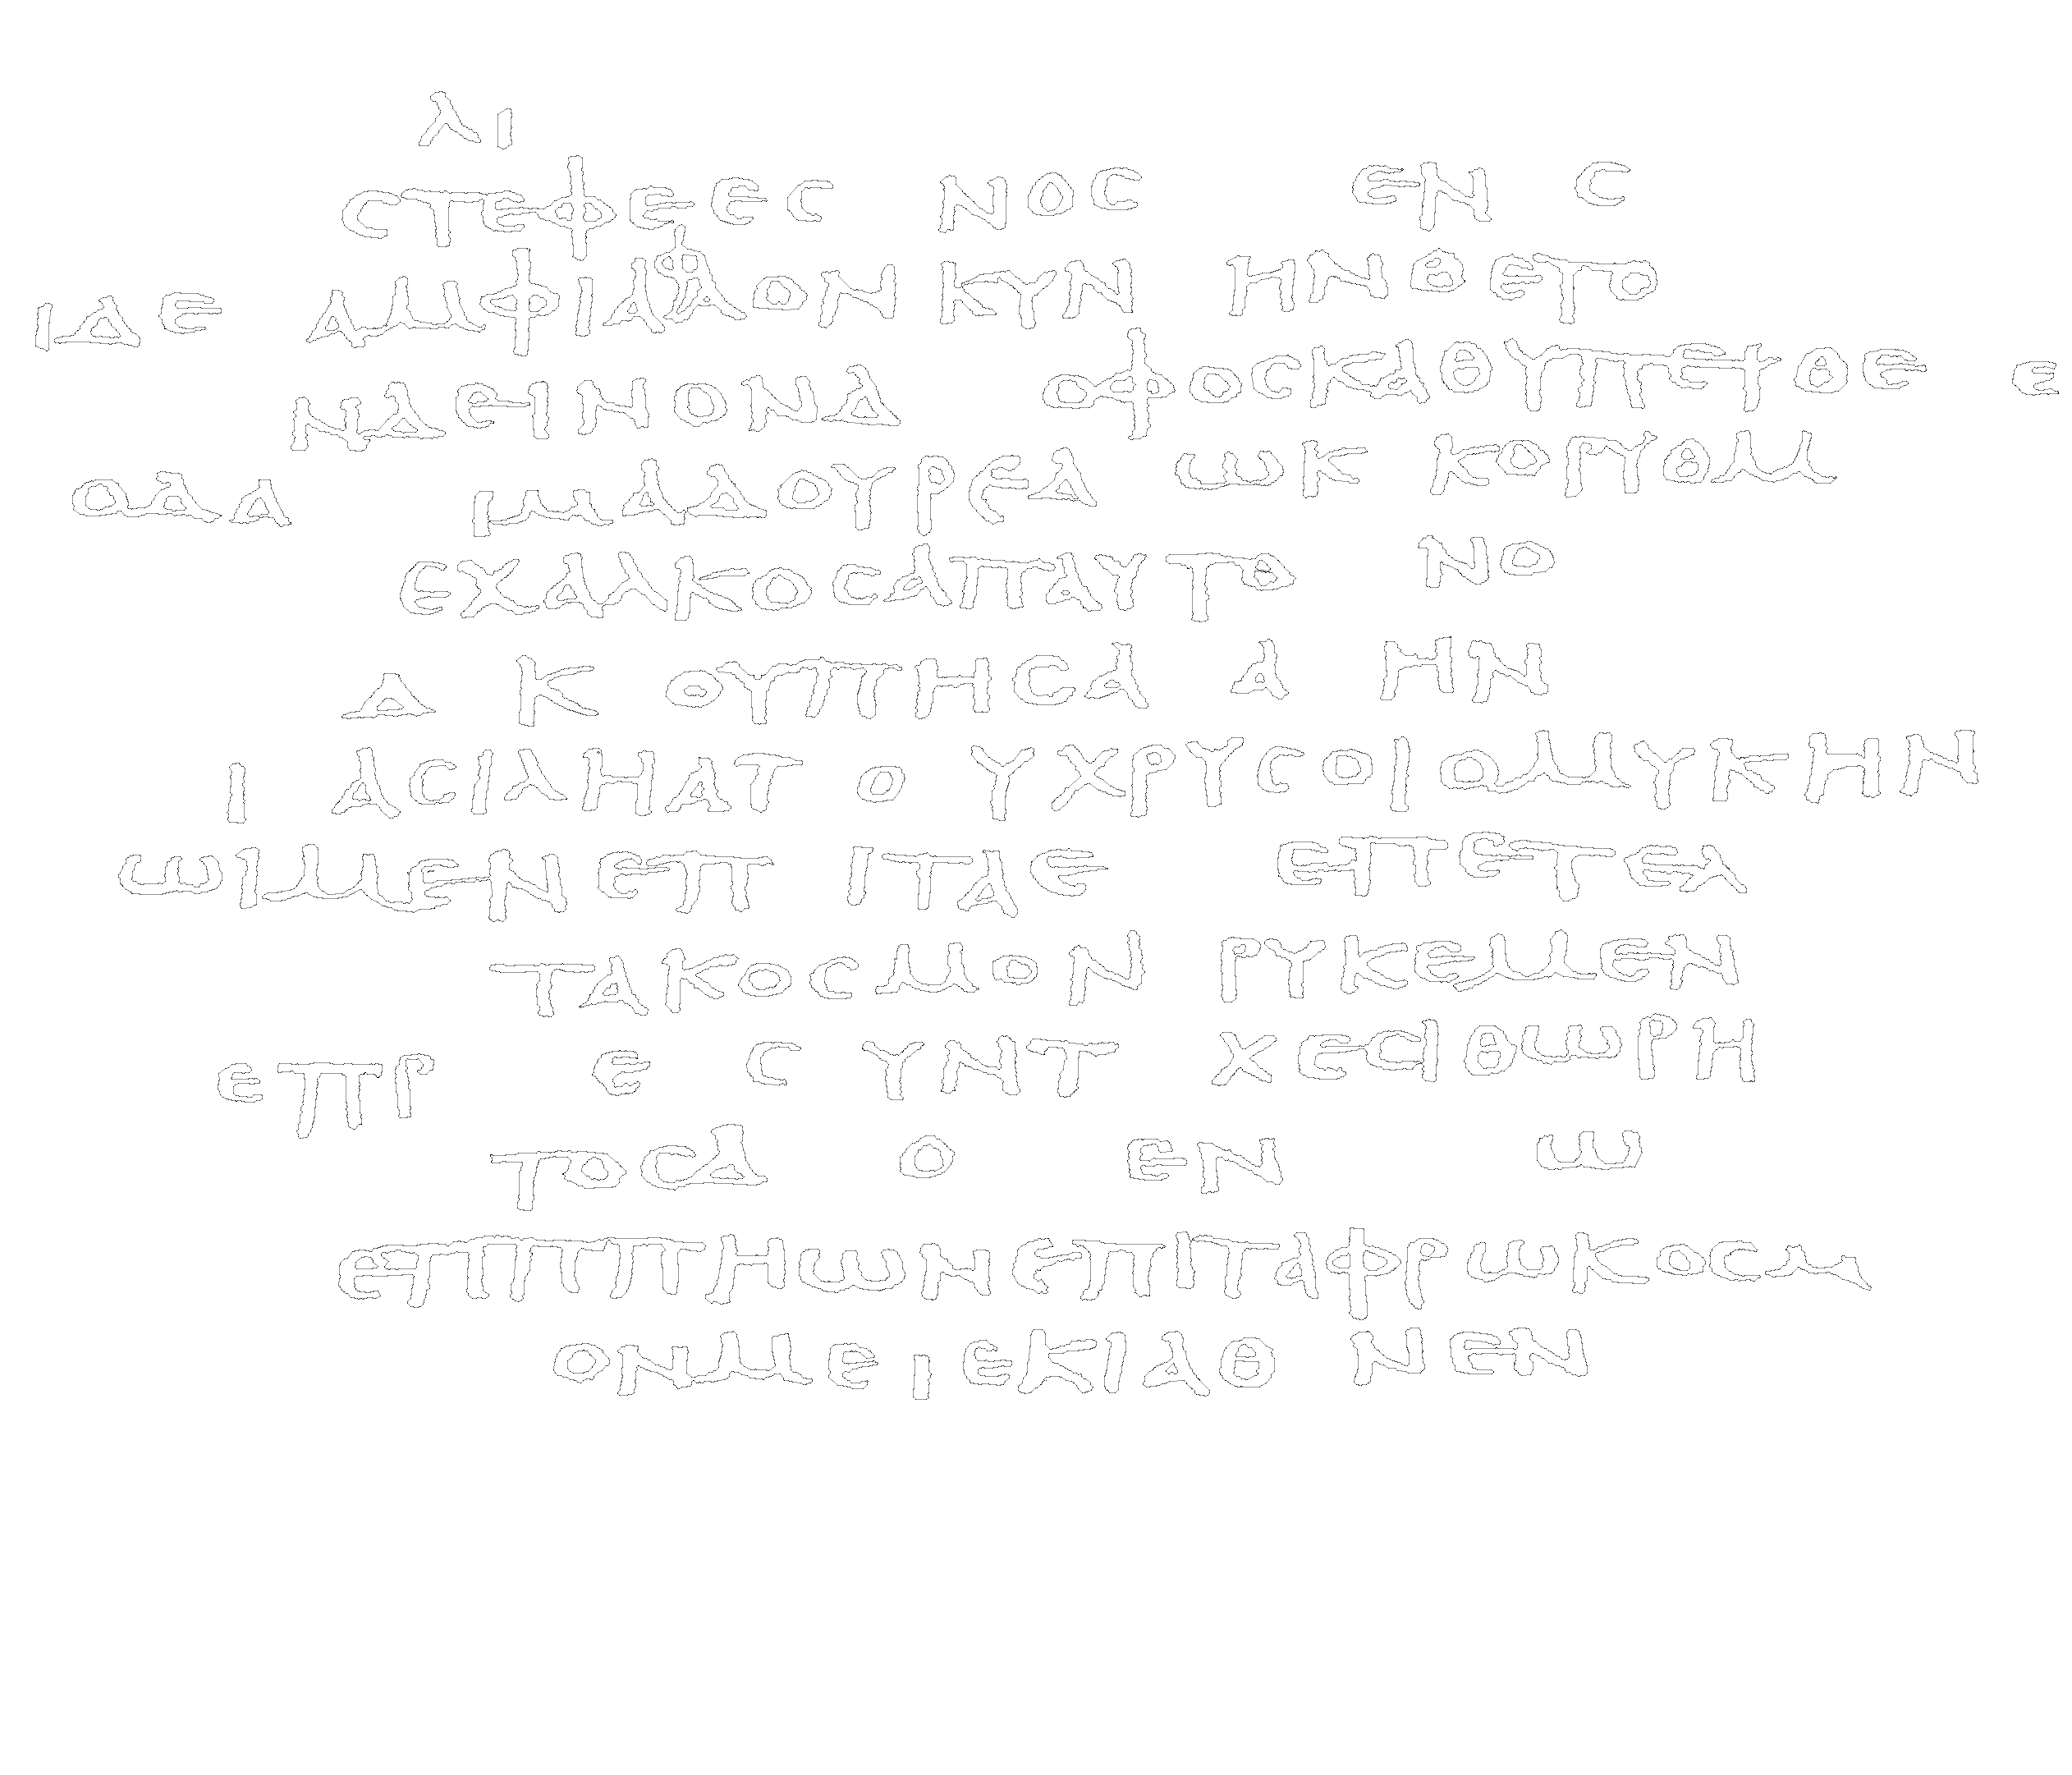 λι
στεφεες νος εν ς
ιδε αμφιαλον κυν ηνθετο
ναεινονδ οφοσκαθυπετθε ε
οδα ιμαδουρεα ωκ κοπομ
εχαλκοσαπαυτο νο
δ κ ουπησα α ην
ι ασιληατ ο υχρυσοιομυκην
ωιμενεπ ιταε επετελ
τακοσμον ρυκεμεν
επρ ε ς υντ χεσιθωρη
τοσδ ο εν ω
επππηωνεπιταφρωκοσμ
ονμε ιεκιαθ νεν